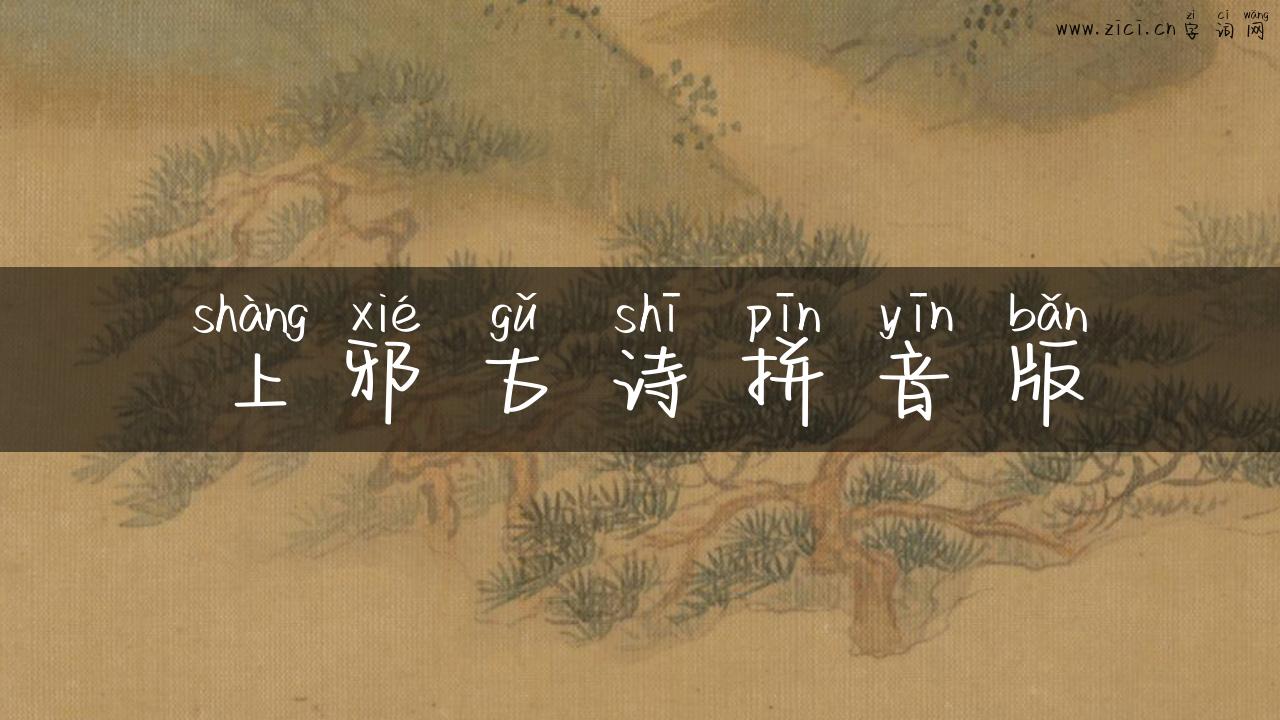 zì cí wǎng
www.zici.cn 字词网
shàng xié gǔ shī pīn yīn bǎn
上邪古诗拼音版